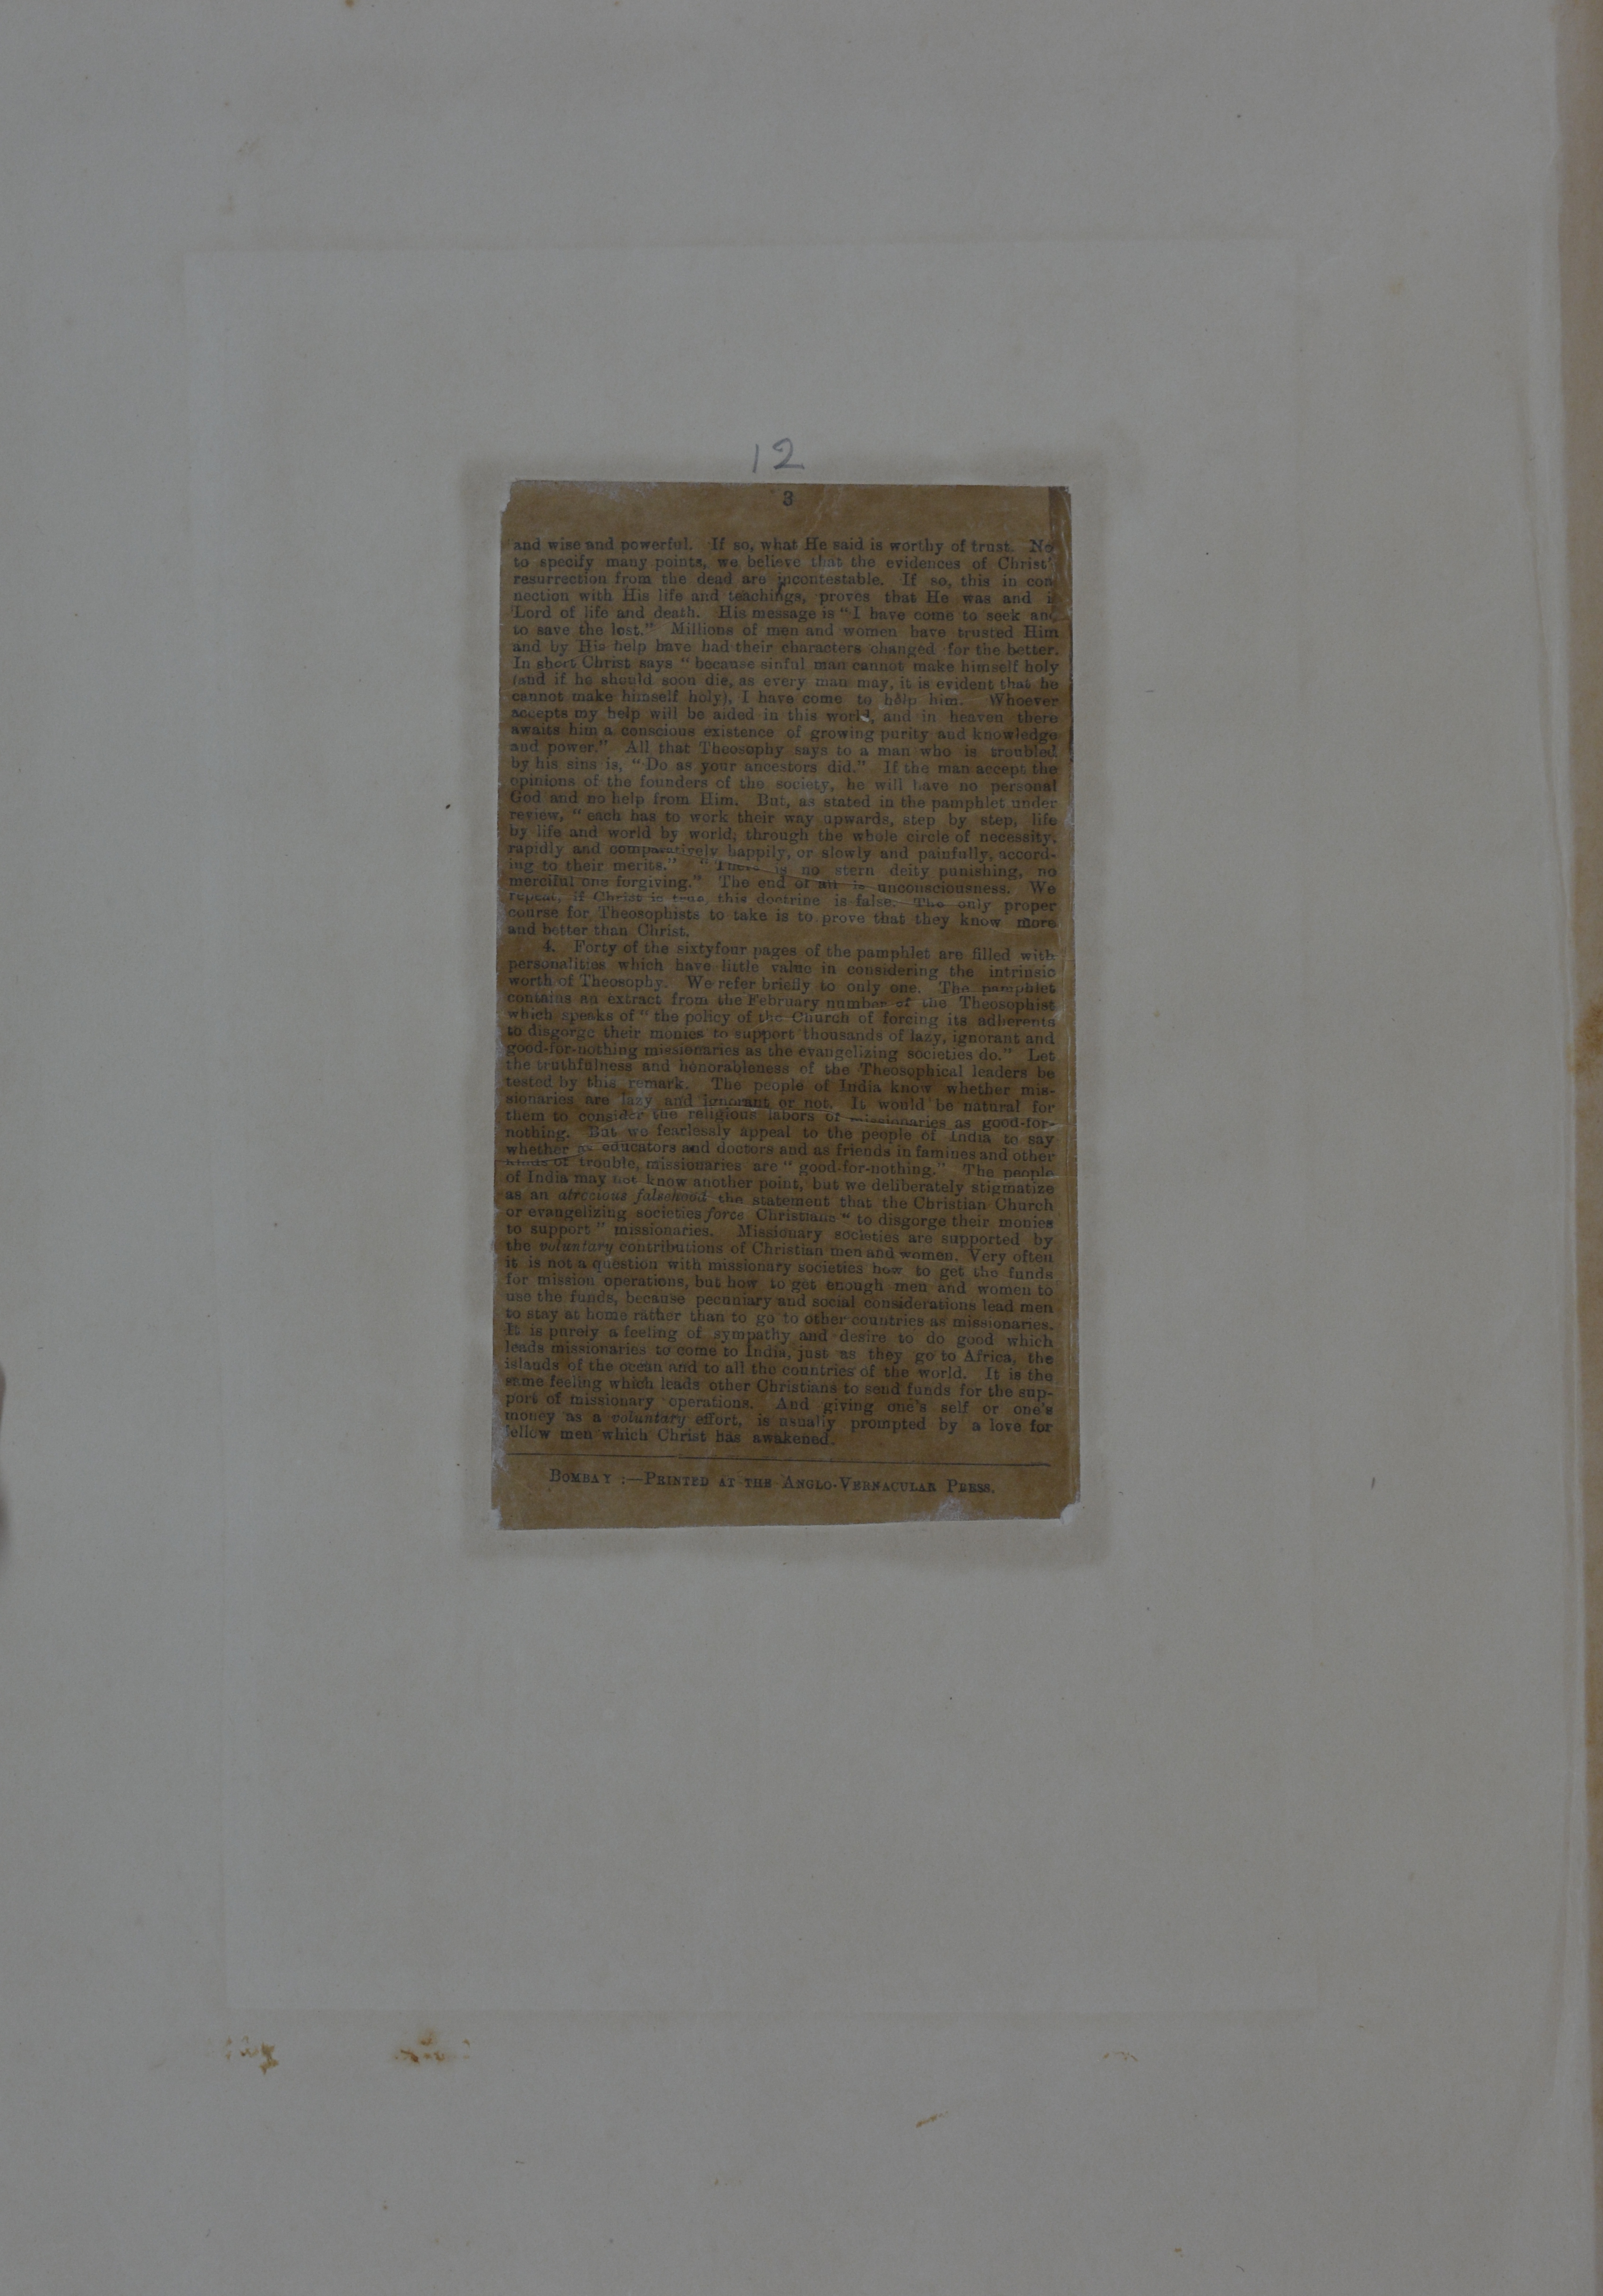 12
3
and wise and powerful. If so, what He said is worthy of trust. No
to specify many points, we believe that the evidences of Christ'
resurrection from the dead are incontestable. If so, this in con
nection with His life and teachings, proves that He was and i
Lord of life and death. His message is "I have come to seek and
to save the lost." Millions of men and women have trusted Him
and by His help have had their characters changed for the better.
In short Christ says "because sinful man cannot make himself holy
(and if he should soon die, as every man may, it is evident that he
cannot make himself holy), I have come to help him. Whoever
accepts my help will be aided in this world, and in heaven there
awaits him a conscious existence of growing purity and knowledge
and power." All that Theosophy says to a man who is troubled
by his sins is, "Do as your ancestors did." If the man accept the
opinions of the founders of the society, he will have no personal
God and no help from Him. But, as stated in the pamphlet under
review, "each has to work their way upwards, step by step, life
by life and world by world, through the whole circle of necessity,
rapidly and comparatively happily, or slowly and painfully, accord-
ing to their merits." "There is no stern deity punishing, no
merciful one forgiving." The end of all is unconsciousness. We
repeat, if Christ is true, this doctrine is false. The only proper
course for Theosophists to take is to prove that they know more
and better than Christ.
4. Forty of the sixtyfour pages of the pamphlet are filled with
personalities which have little value in considering the intrinsic
worth of Theosophy. We refer briefly to only one. The pamphlet
contains an extract from the February number of the Theosophist
which speaks of "the policy of the Church of forcing its adherents
to disgorge their monies to support thousands of lazy, ignorant and
good-for-nothing missionaries as the evangelizing societies do." Let
the truthfulness and honorableness of the Theosophical leaders be
tested by this remark. The people of India know whether mis-
sionaries are lazy and ignorant or not. It would be natural for
them to consider the religious labors of missionaries as good-for-
nothing. But we fearlessly appeal to the people of India to say
whether as educators and doctors and as friends in famines and other
kinds of trouble, missionaries are "good-for-nothing." The people
of India may not know another point, but we deliberately stigmatize
as an atrocious falsehood the statement that the Christian Church
or evangelizing societies force Christians "to disgorge their monies
to support" missionaries. Missionary societies are supported by
the voluntary contributions of Christian men and women. Very often
it is not a question with missionary societies how to get the funds
for mission operations, but how to get enough men and women to
use the funds, because pecuniary and social considerations lead men
to stay at home rather than to go to other countries as missionaries.
It is purely a feeling of sympathy and desire to do good which
leads missionaries to come to India, just as they go to Africa, the
islands of the ocean and to all the countries of the world. It is the
same feeling which leads other Christians to send funds for the sup-
port of missionary operations. And giving one's self or one's
money as a voluntary effort, is usually prompted by a love for
fellow men which Christ has awakened.
BOMBAY :—PRINTED AT THE ANGLO-VERNACULAR PRESS.